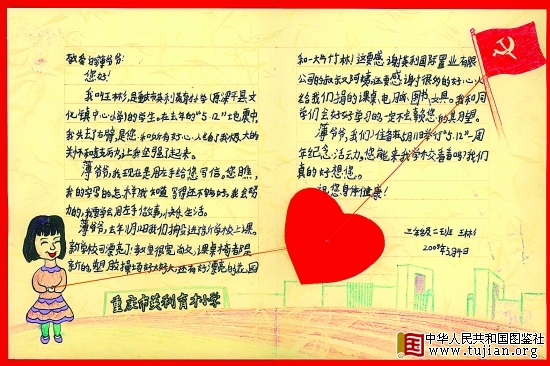 敬爱的薄爷爷:
您好!
我叫王林彡,是重庆市英利育才小学(原梁平县文
化镇中心小学)的学生。在去年的"5.12"地震中
我失去了右臂,是您和所有好心人给了我极大的
关怀和鼓励,让我坚强了起来。
薄爷爷,我现在是用左手给您写信,您瞧,
我的字写的怎么样?我知道写得还不够好,我会努
力的,我要学会用左手做事,快乐生活。
薄爷爷,去年11月18日我们搬进新学校上课。
新学校可漂亮了!教室很宽、而大,课桌椅都是
新的,塑胶操场好大好大,还有好漂亮的花园
和一大片竹林!这要感谢英利国际置业有限
公司的叔叔阿姨,还要感谢很多的好心人
给我们捐的课桌,电脑、图书、文具。我和同
学们会好好学习的,一定不辜负您的期望。
薄爷爷,我们准备在5月11日举行"5.12"一周
年纪念活动,您能来我学校看看吗?我们
真的好想您。
祝您身体健康!
三年级二班 王林彡
2009年3月9日
重庆市英利育才小学
中华人民共和国图鉴社
www.tujian.org